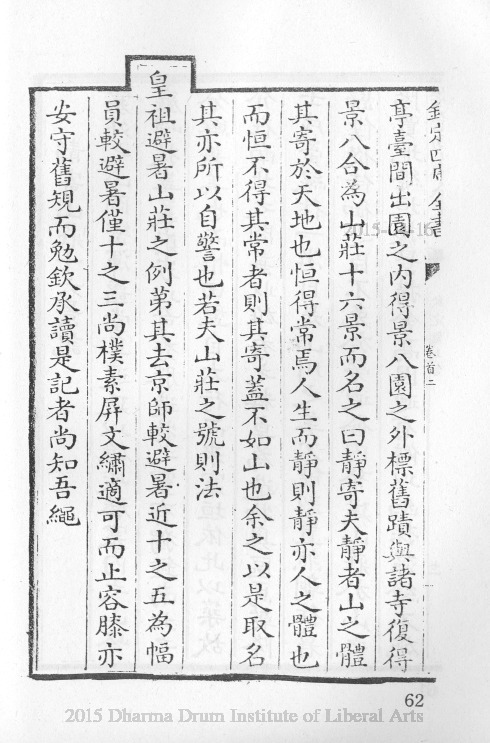 欽定四庫全書
卷首二
亭臺間出園之内得景八園之外標舊蹟與諸寺復得
景八合為山莊十六景而名之曰靜寄夫靜者山之體
其寄於天地也恒得常焉人生而靜則靜亦人之體也
而恒不得其常者則其寄蓋不如山也余之以是取名
其亦所以自警也若夫山莊之號則法
皇祖避暑山莊之例第其去京師較避暑近十之五為幅
員較避暑僅十之三尚樸素屏文繡適可而止容膝亦
安守舊規而勉欽承讀是記者尚知吾繩
62
2015 Dharma Drum Institute of Liberal Arts